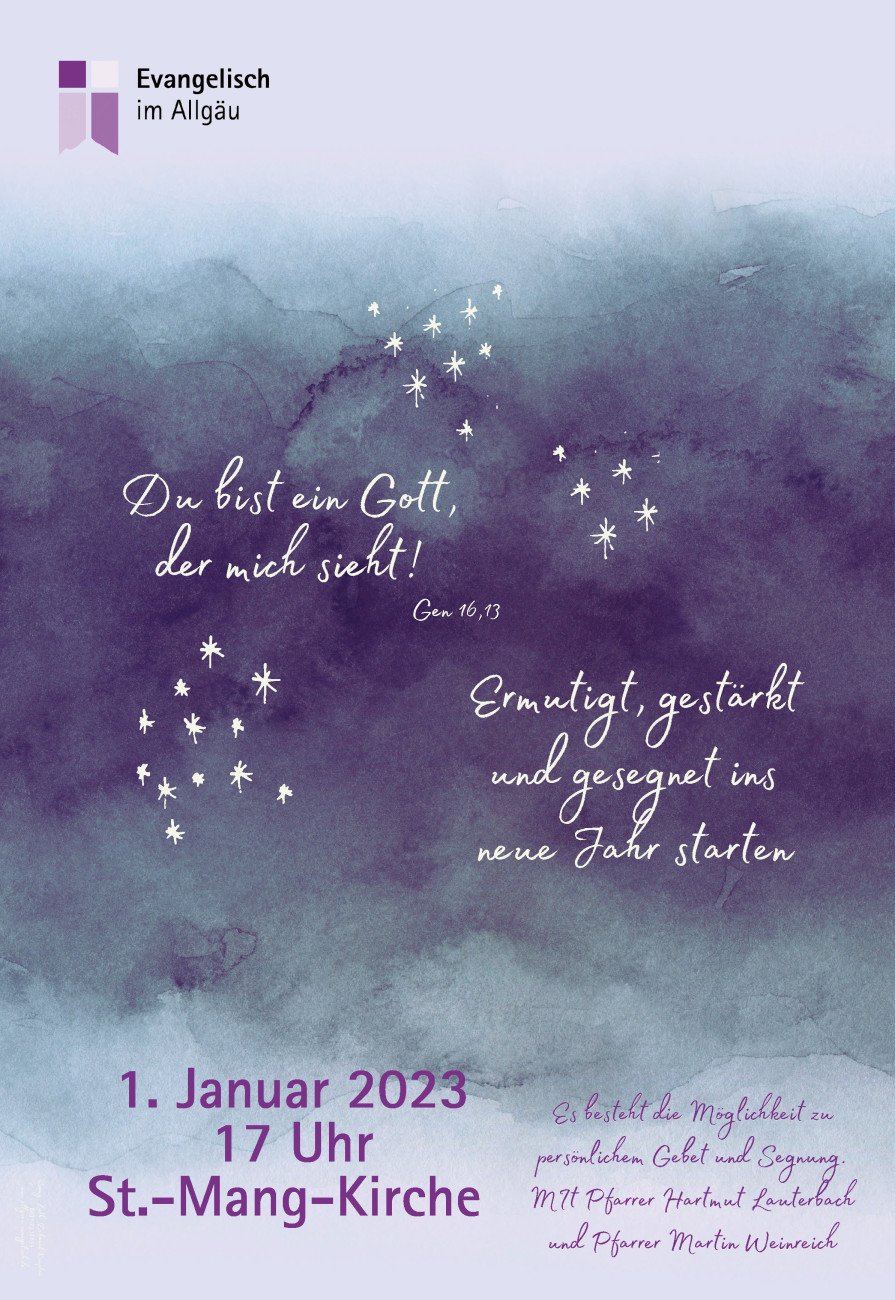 Evangelisch
im Allgäu
Du bist ein Gott,
der mich sieht!
Gen 16,13
Ermutigt, gestärkt
und gesegnet ins
neue Jahr starten
1. Januar 2023
17 Uhr
St.-Mang-Kirche
Es besteht die Möglichkeit zu
persönlichem Gebet und Segnung.
MIt Pfarrer Hartmut Lauterbach
und Pfarrer Martin Weinreich